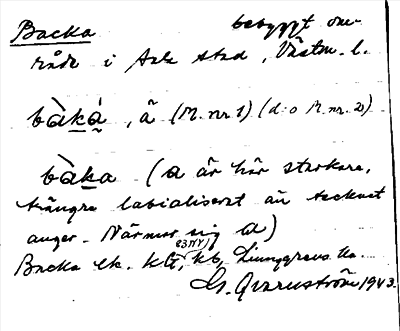 Backa bebyggt om-
råde i Sala stad, Västm. l.
bàká, ä (M. nr. 1) (d:o M. nr. 2)
bàka (a är här starkare,
trängre labialiserat än tecknet
anger. Närmar sig a)
Backa ek. kG, kb, Ljunggrens ks.
G. Qvarnström 1943.